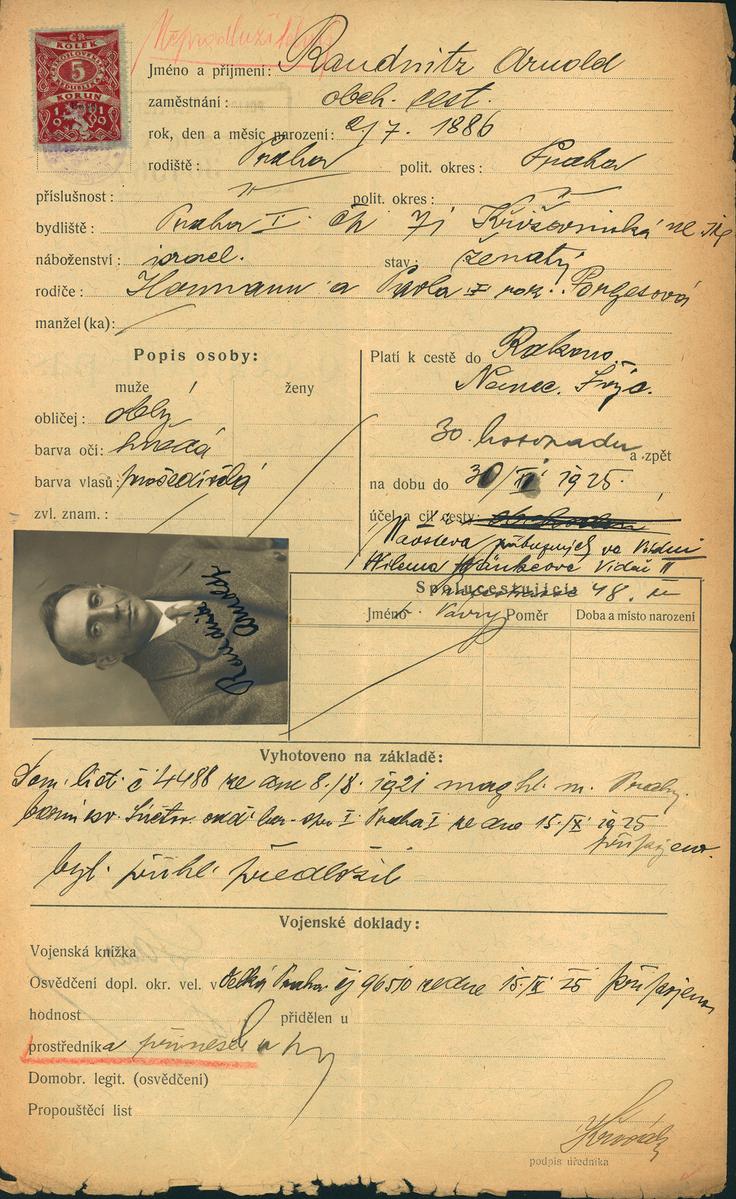 KOLEK
5
KORUN
1919
Jméno a přijmení: Raudnitz Arnold
zaměstnání: obch. cest.
rok, den a měsíc narození: 2/7. 1886
rodiště: Praha polit. okres: Praha
příslušnost: polit. okres:
bydliště: Praha I. čp 71 Křižovnická
náboženství: israel. stav: ženatý
rodiče: Hermann a Pavla roz. Porgesová
manžel (ka):
Popis osoby: Platí k cestě do Rakous.
muže ženy Němec. Švýc.
obličej: oblý
barva očí: hnědá 30. listopadu a zpět
barva vlasů: prošedivělá na dobu do 30/ 1925.
zvl. znam.: účel a cíl cesty:
Návštěva příbuzných ve Vídni
Vídeň II
Spolucestující: 48.
Jméno Poměr Doba a místo narození
Raudnitz Arnold
Vyhotoveno na základě:
Dom. list. č 4488 ze dne 8./8. 1921 mag. hl. m. Prahy.
I Praha I ze dne 15./IX 1925
připojeno.
byl. předložil
Vojenské doklady:
Vojenská knížka
Osvědčení dopl. okr. vel. v Velká Praha čj 96510 ze dne 15./IX 25 připojeno
hodnost přidělen u
prostředníka přinesl
Domobr. legit. (osvědčení)
Propouštěcí list
podpis úředníka